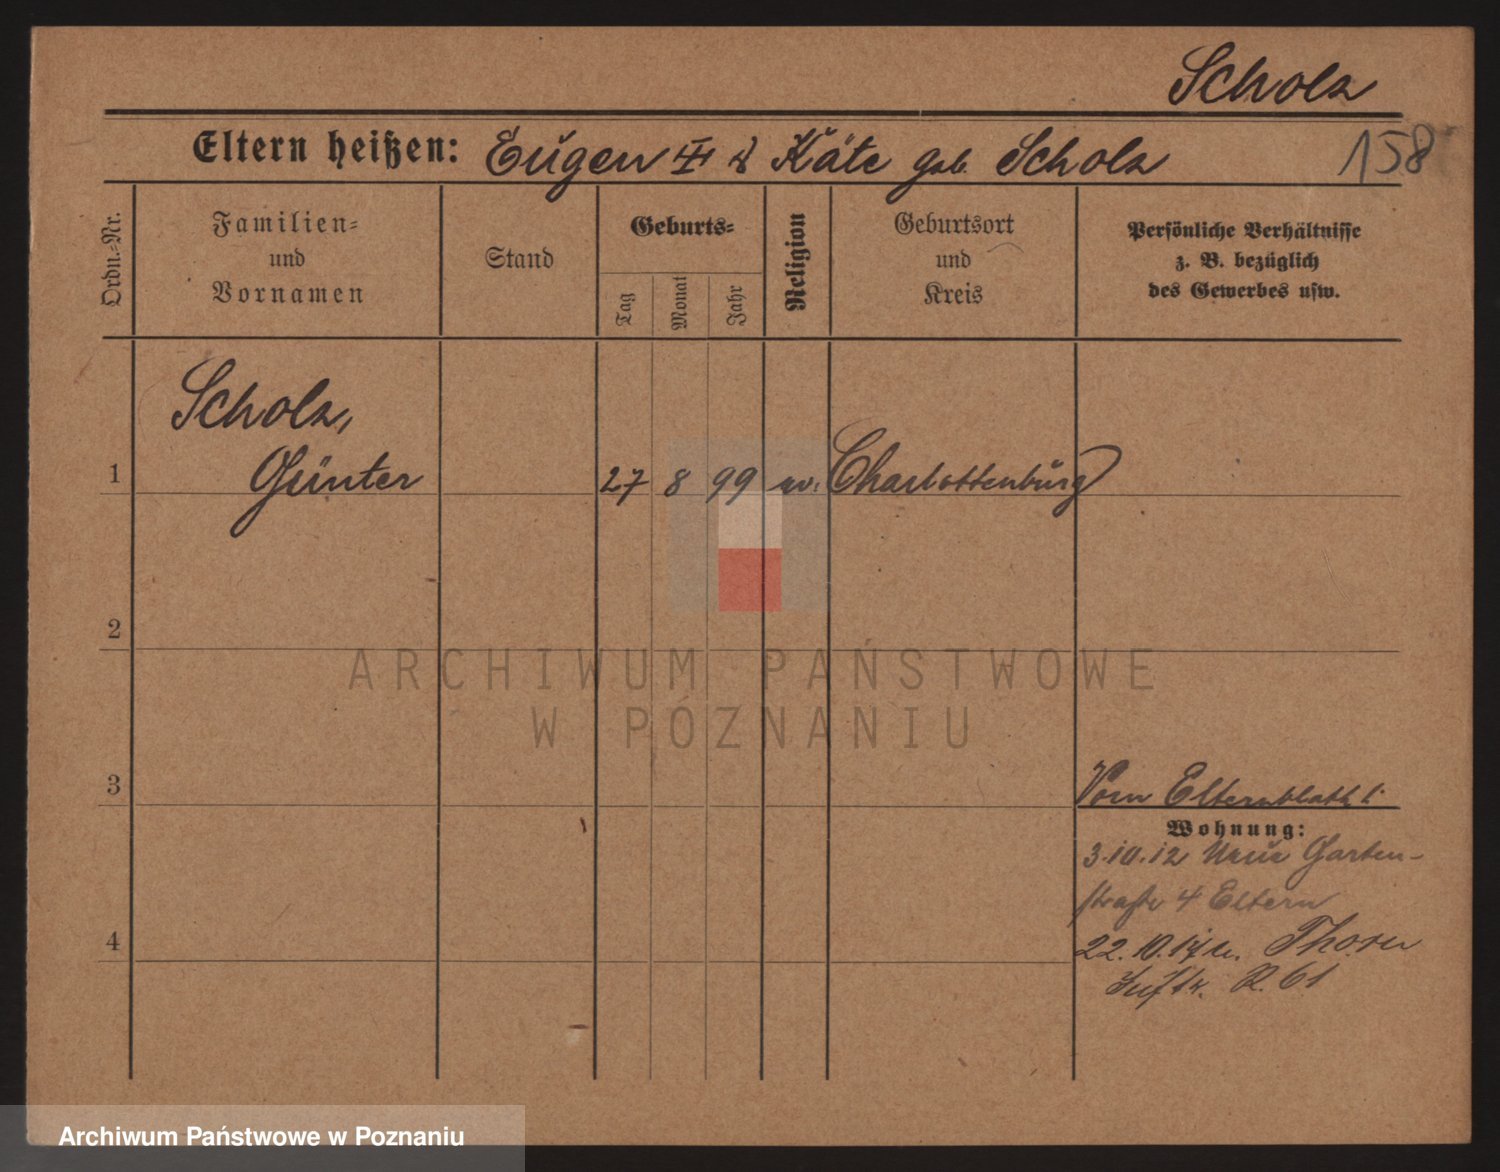 Scholz
Eltern heißen: Eugen III & Käte geb. Scholz
158
Ordn.=Nr.
Familien=
und
Vornamen
Stand
Geburts=
Tag
Monat
Jahr
Religion
Geburtsort
und
Kreis
Persönliche Verhältnisse
z. B. bezüglich
des Gewerbes usw.
Scholz,
1 Günter 27 8 99 ev. Charlottenburg
2
ARCHIWUM PAŃSTWOWE
W POZNANIU
3
Vom Elternblatt
Wohnung:
3.10.12 Neue Garten-
straße 4 Eltern
4
22.10.17 Thorn
R. 61
Archiwum Państwowe w Poznaniu